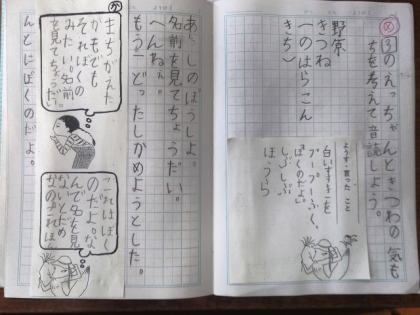 ③のえっちゃんときつねの気も
ちを考えて音読しよう。
野原
きつね
(一のはらこん
きち)
ようす・言った こと
白いすすきを
プープーふく。
「ぼくのだよ。」
しぶしぶ
ほうら
あ、しのぼうしよ。
名前を見てちょうだい。
へんねぇ。
もう一どったしかめようとした。
まちがえた
かもでも
それぼくの
みたい。名前
を見てちょうだい。
これはぼく
のだよ。な
んで名を見
ないとだめ
なの
んとにぼくのだよ。